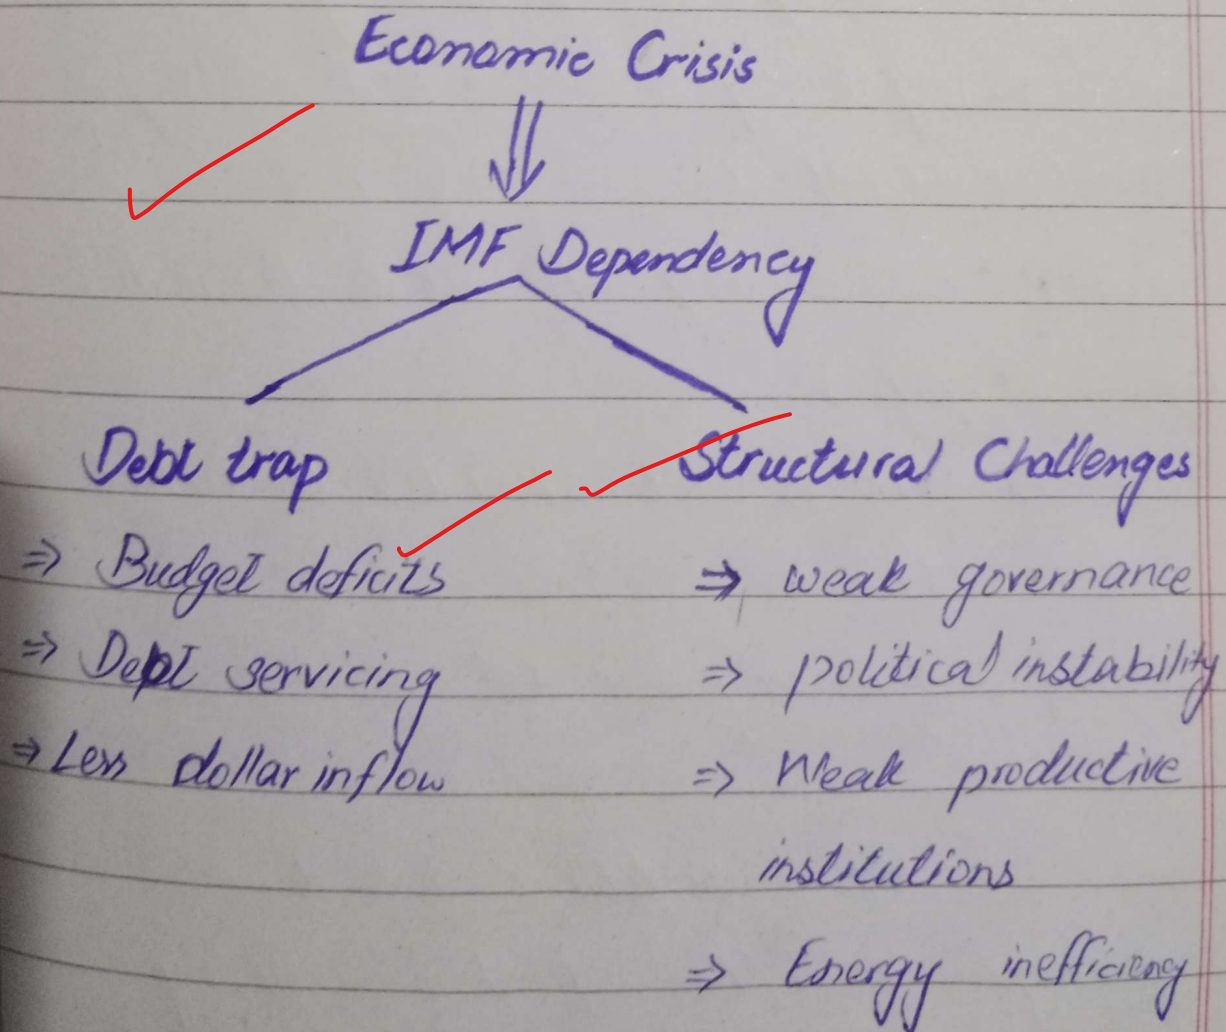 Economic Crisis
IMF Dependency
Debt trap
⇒ Budget deficits
⇒ Debt servicing
⇒ Less dollar inflow
Structural Challenges
⇒ weak governance
⇒ political instability
⇒ Weak productive
institutions
⇒ Energy inefficiency